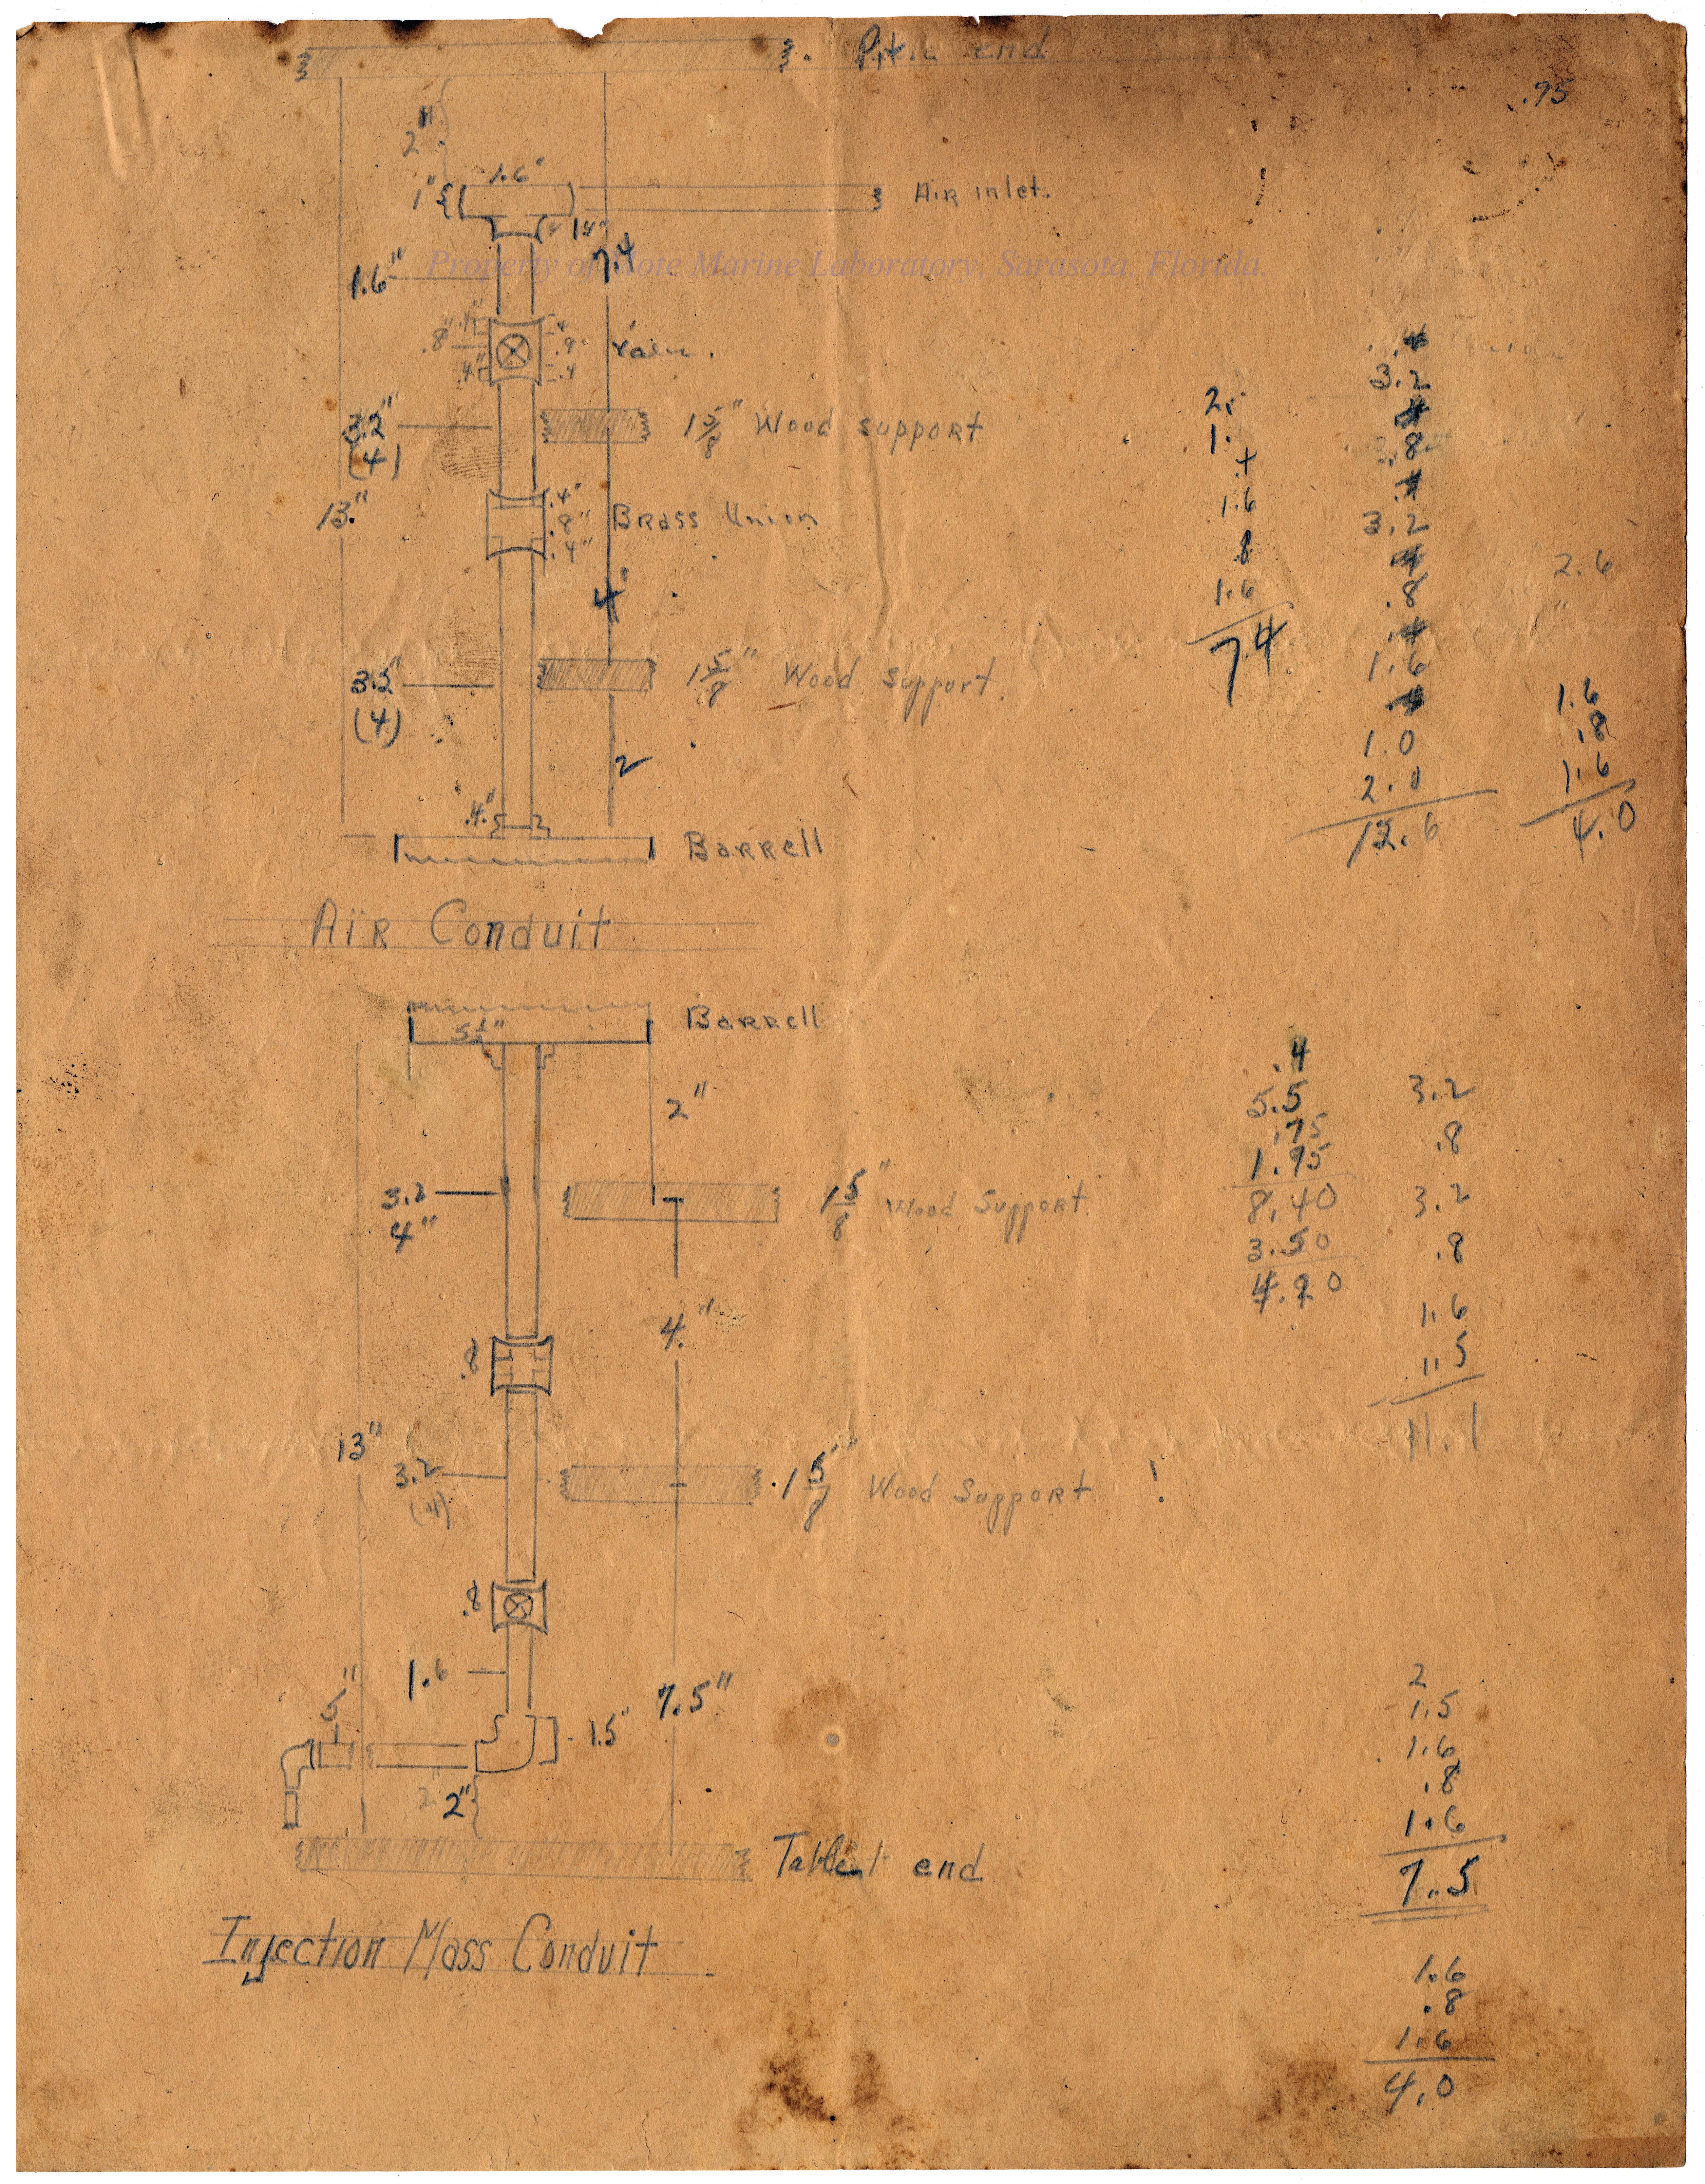 end
.75
2"
1.6"
1"
Air inlet.
1.6"
7.4
Property of Mote Marine Laboratory, Sarasota, Florida.
.8"
.4"
.4"
.4
.9
.4
3.2"
(4)
1 5/8" Wood support
13."
.4"
.8"
.4"
Brass Union
4"
3.2"
(4)
1 5/8" Wood Support.
2
.4"
Barrell
Air Conduit
2.
1.
.4
1.6
.8
1.6
7.4
.4
3.2
.4
.8
.4
3.2
.4
.8
.4
1.6
.4
1.0
2.0
12.6
2.6
1.6
.8
1.6
4.0
Barrell
5 1/2"
2"
3.2
4"
1 5/8" Wood Support.
4."
.8
13"
3.2
(4)
.1 5/8" Wood Support.
.8
1.6
7.5"
5"
1.5"
2"
2"
Tablet end
Injection Mass Conduit
.4
5.5
.75
1.75
8.40
3.50
4.90
3.2
.8
3.2
.8
1.6
1.5
11.1
2
1.5
1.6
.8
1.6
7.5
1.6
.8
1.6
4.0